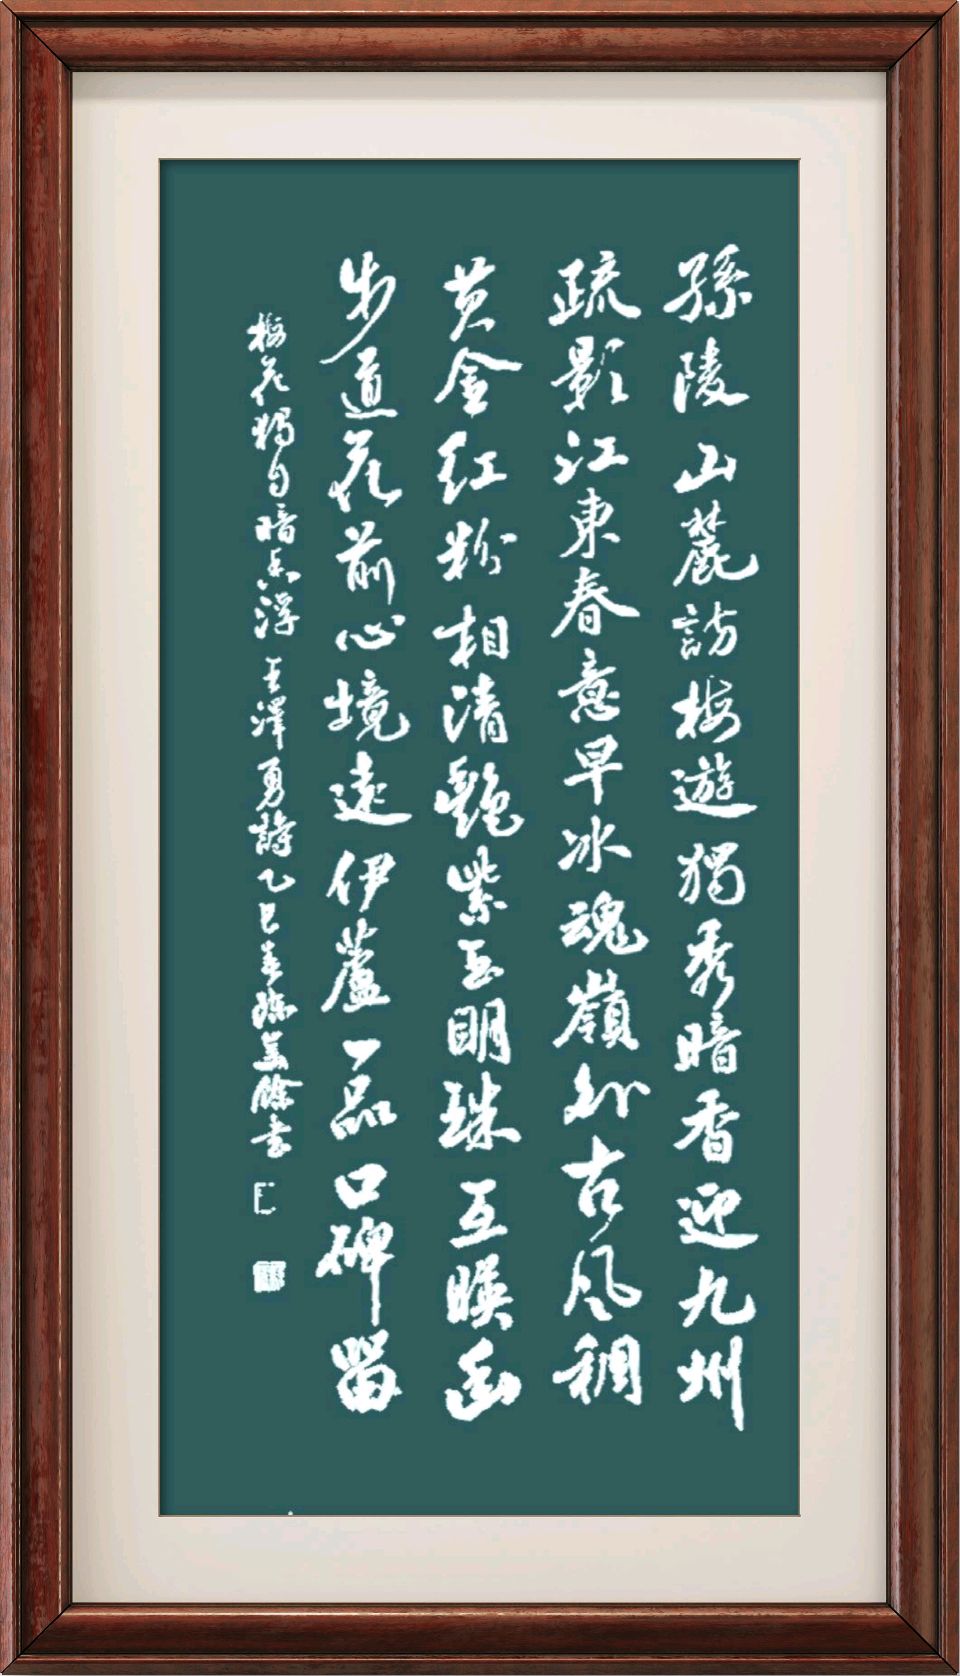 孫陵山麓訪梅遊獨秀暗香迎九州
疏影江東春意早冰魂嶺外古風稠
黄金红粉相清艶紫玉明珠互暎幽
步道花前心境遠伊蘆一品口碑留
梅花獨自暗香浮 王澤勇詩乙巳春 餘書